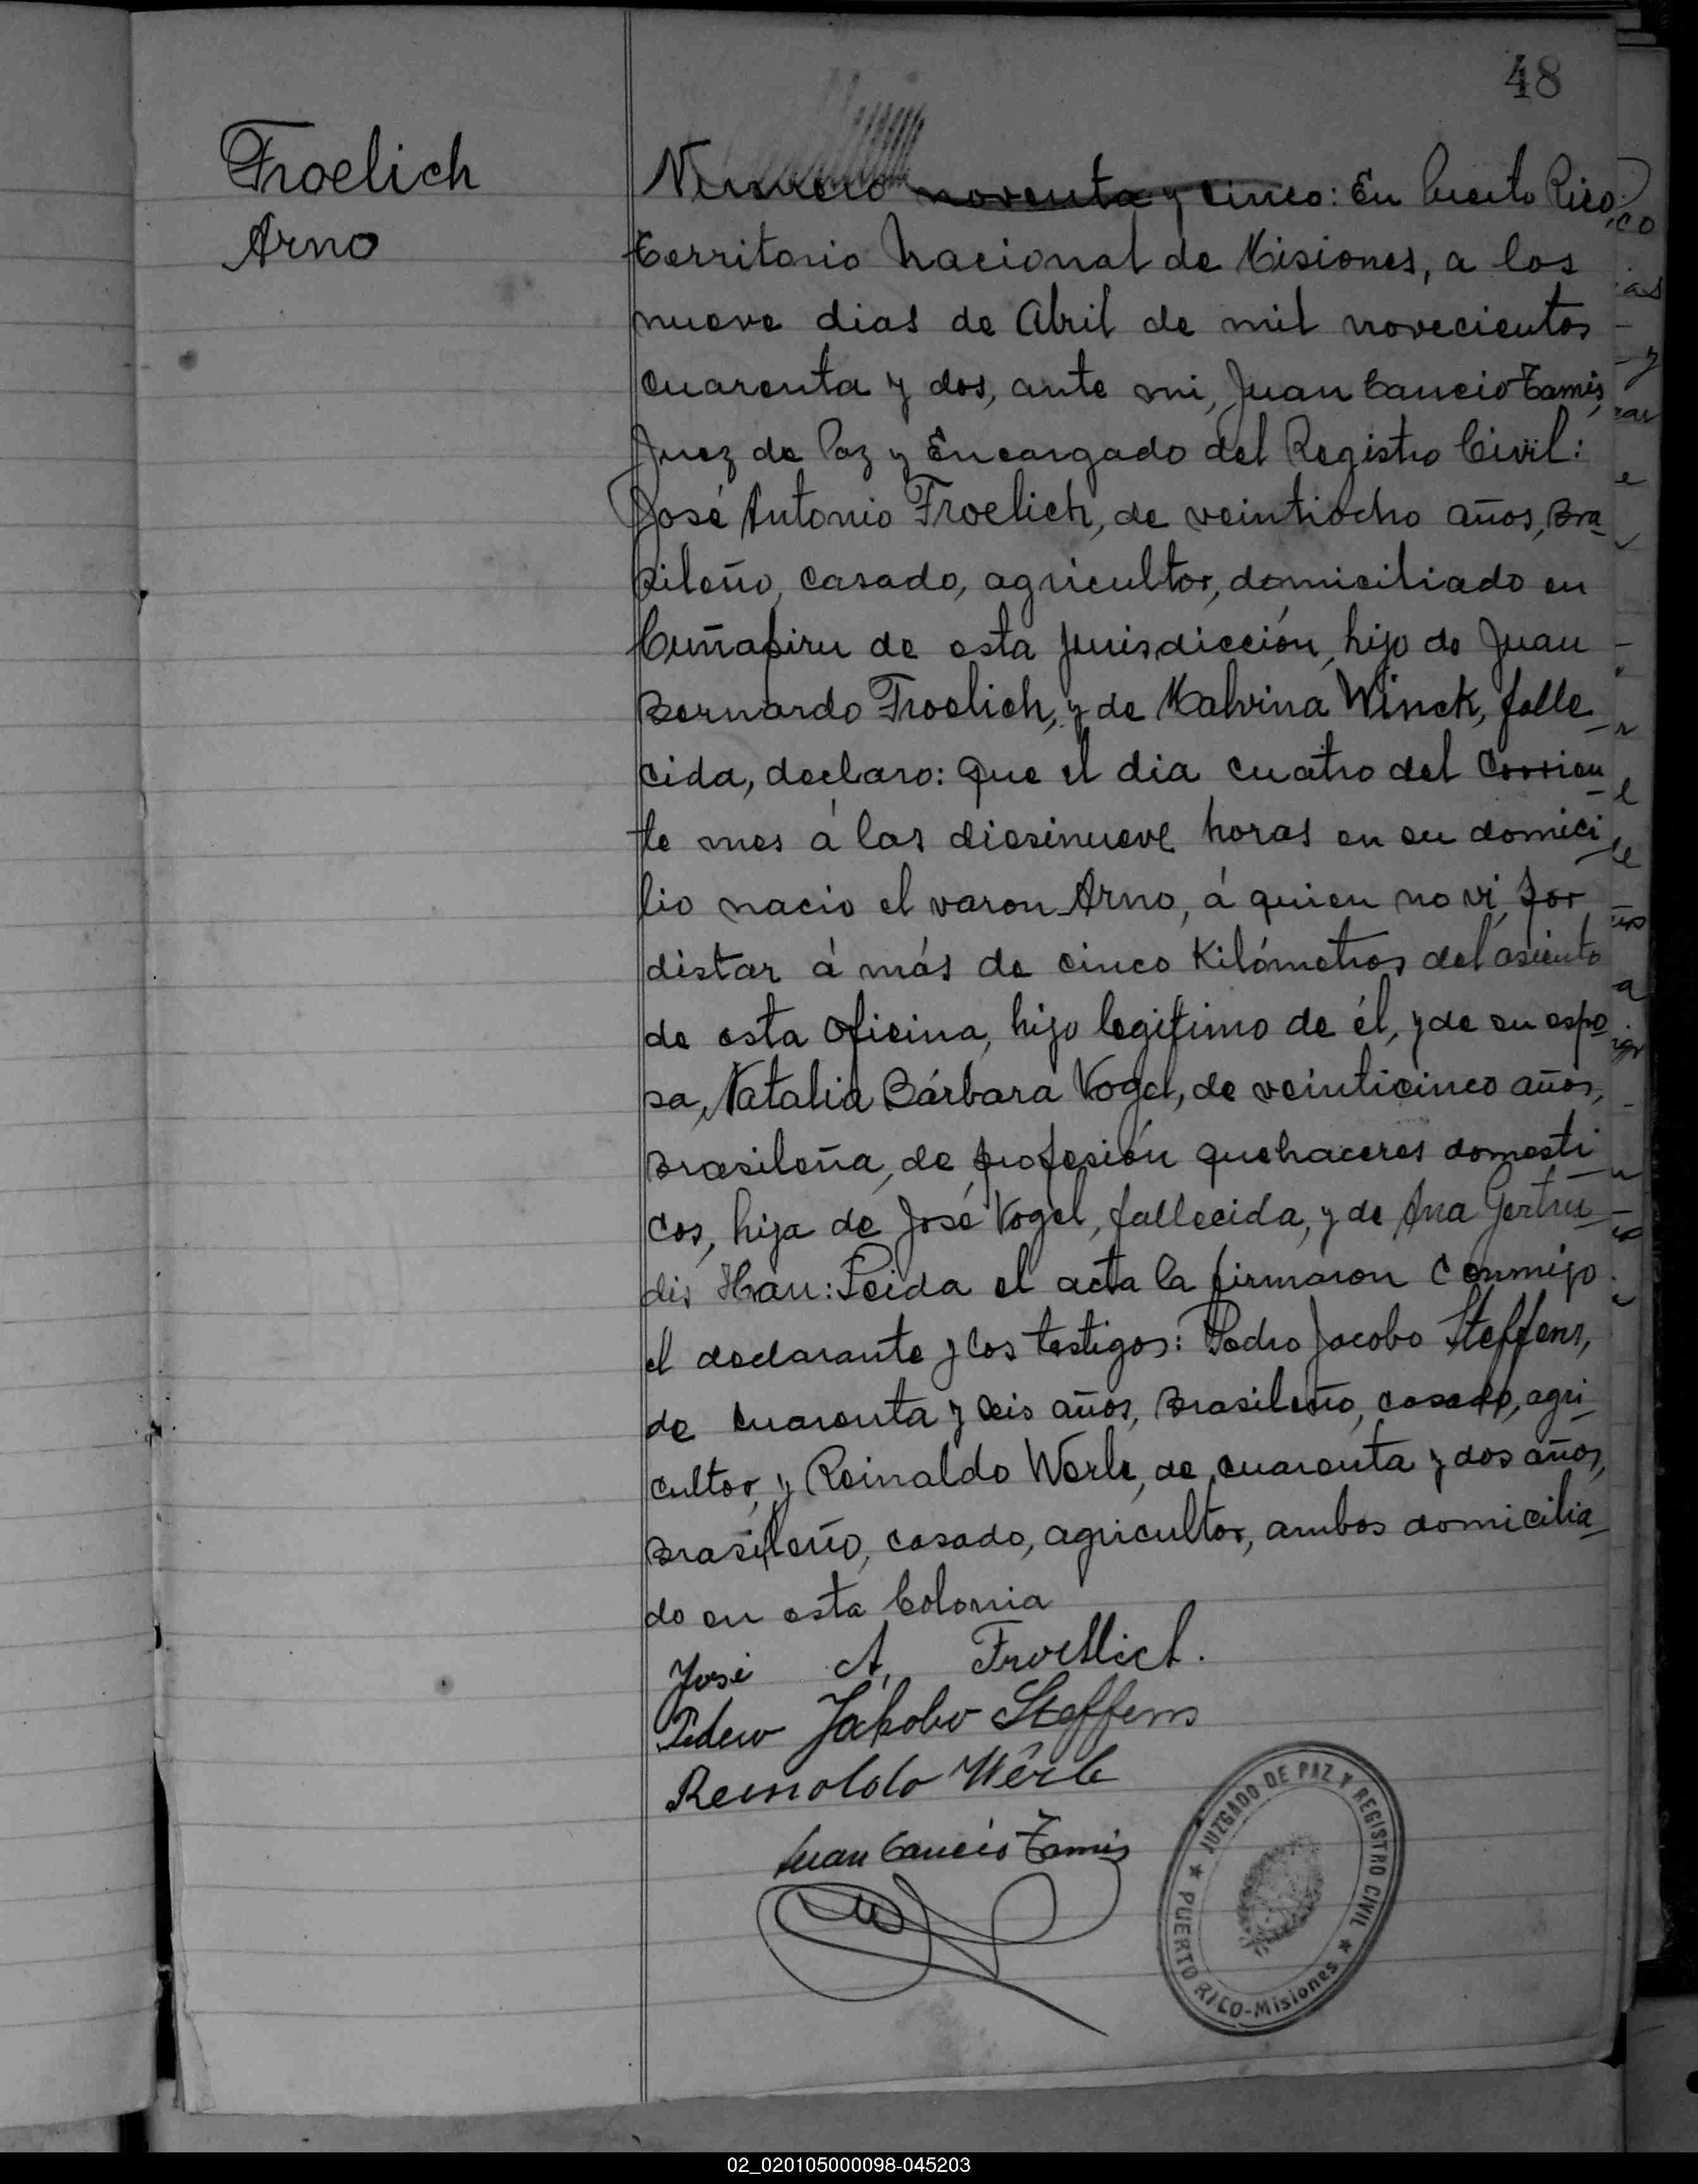 48
Froelich
Arno
Numero noventa y cinco: En Puerto Rico,
Territorio Nacional de Misiones, a los
nueve dias de Abril de mil novecientos
cuarenta y dos, ante mi, Juan Cancio Tamis,
Juez de Paz y Encargado del Registro Civil:
José Antonio Froelich, de veintiocho años, Bra-
sileño, casado, agricultor, domiciliado en
Cuñapiru de esta jurisdicción, hijo de Juan
Bernardo Froelich, y de Malvina Winck, falle-
cida, declaro: Que el dia cuatro del Corrien-
te mes á las diesinueve horas en su domici-
lio nacio el varon Arno, á quien no vi, por
distar á más de cinco Kilómetros del asiento
de esta Oficina, hijo legitimo de él, y de su espo-
sa, Natalia Bárbara Vogel, de veinticinco años,
Brasileña, de profesión quehaceres domesti-
cos, hija de José Vogel, fallecida, y de Ana Gertru-
dis Hau: Leida el acta la firmaron Conmigo
el declarante y los testigos: Pedro Jacobo Steffens,
de cuarenta y seis años, Brasileño, casado, agri-
cultor, y Reinaldo Werle, de cuarenta y dos años,
Brasileño, casado, agricultor, ambos domicilia-
do en esta Colonia
José A. Froellich.
Pedro Jakobo Steffens
Reinoldo Wêrle
Juan Cancio Tamis
JUZGADO DE PAZ Y REGISTRO CIVIL
PUERTO RICO-Misiones
02_020105000098-045203